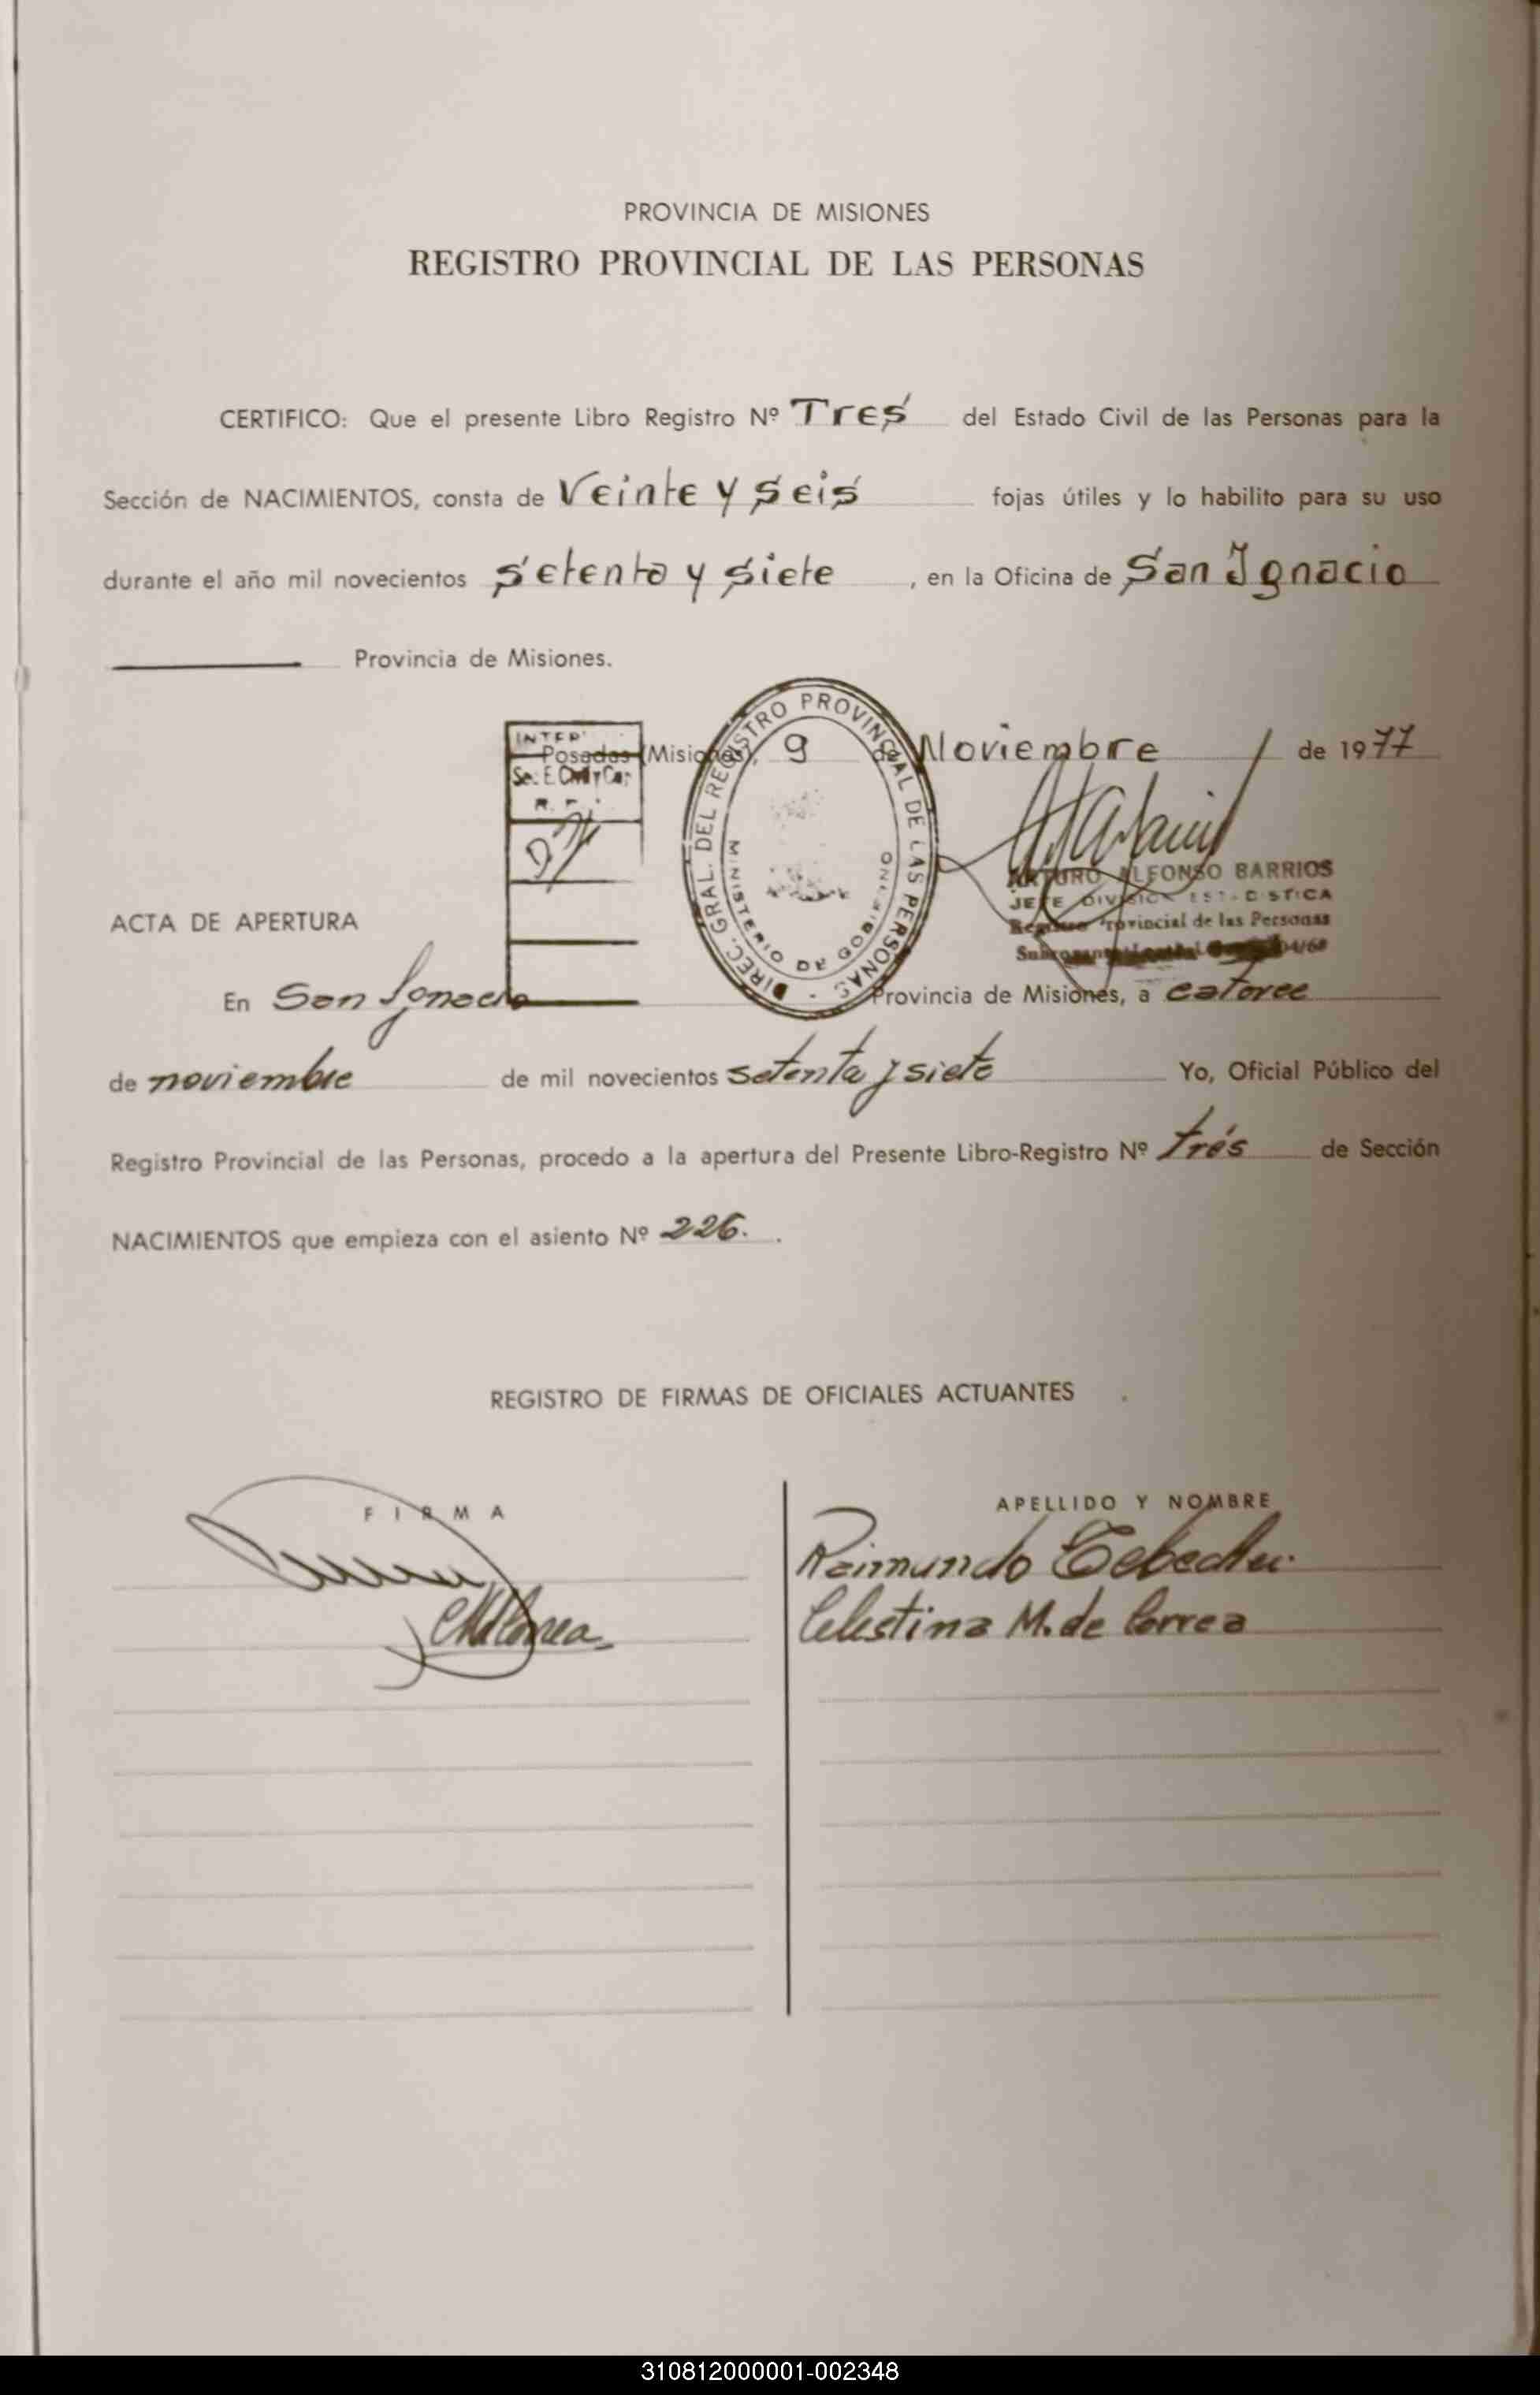 PROVINCIA DE MISIONES
REGISTRO PROVINCIAL DE LAS PERSONAS
CERTIFICO: Que el presente Libro Registro Nº Tres del Estado Civil de las Personas para la
Sección de NACIMIENTOS, consta de Veinte y seis fojas útiles y lo habilito para su uso
durante el año mil novecientos setenta y siete, en la Oficina de San Ignacio
Provincia de Misiones.
Posadas (Misiones), 9 de Noviembre de 1977
INTER
DIREC. GRAL. DEL REGISTRO PROVINCIAL DE LAS PERSONAS -
MINISTERIO DE GOBIERNO
ARTURO ALFONSO BARRIOS
JEFE DIVISION ESTADISTICA
Registro Provincial de las Personas
ACTA DE APERTURA
En San Ignacio Provincia de Misiones, a catorce
de noviembre de mil novecientos setenta y siete Yo, Oficial Público del
Registro Provincial de las Personas, procedo a la apertura del Presente Libro-Registro Nº trés de Sección
NACIMIENTOS que empieza con el asiento Nº 226.
REGISTRO DE FIRMAS DE OFICIALES ACTUANTES
FIRMA APELLIDO Y NOMBRE
Raimundo
CMCorrea Celestina M. de Correa
310812000001-002348